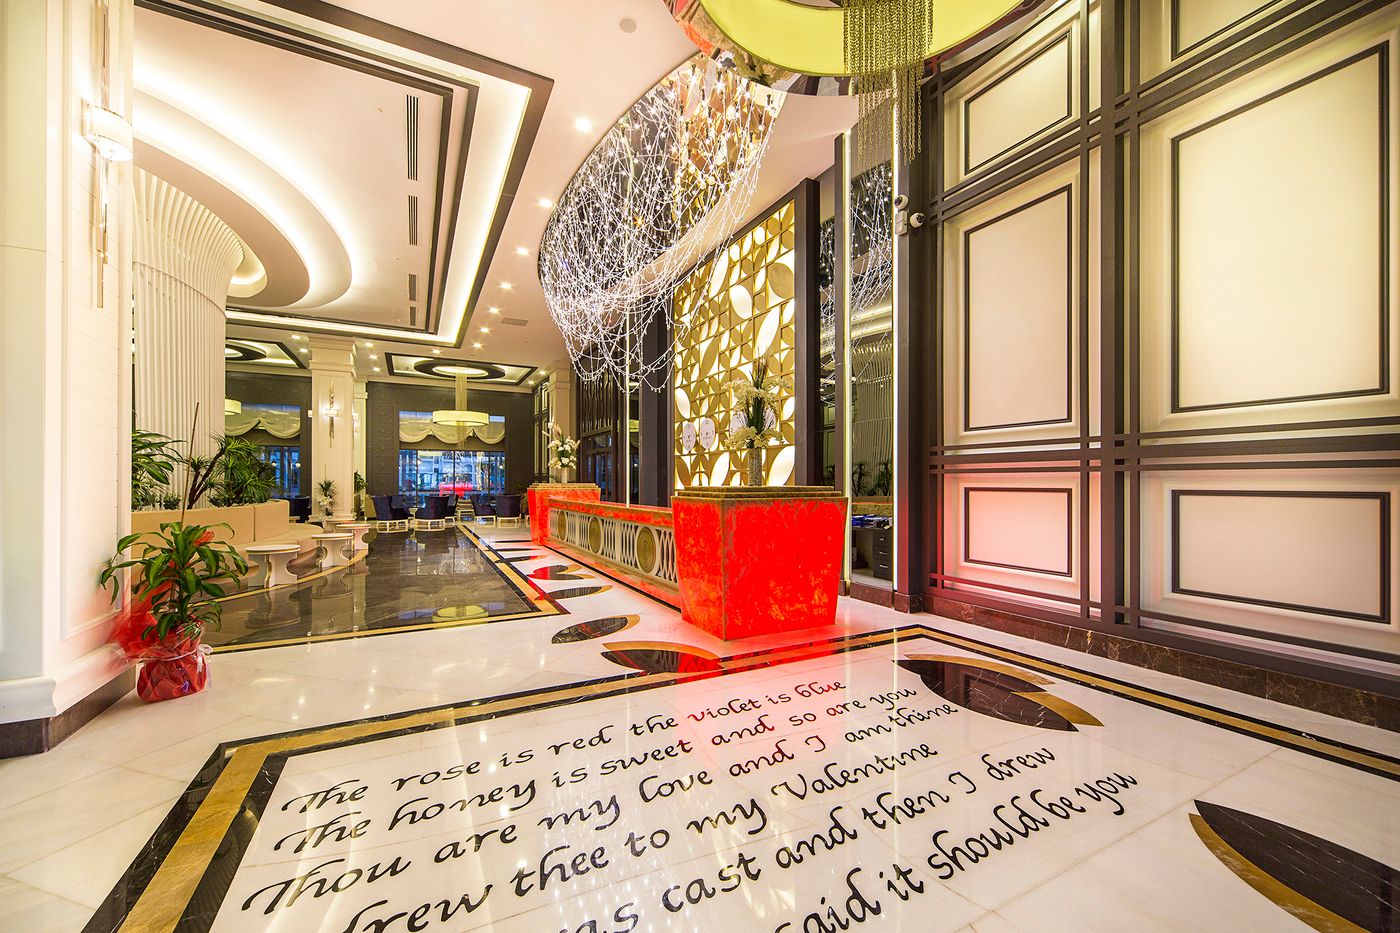 The rose is red the violet is blue
The honey is sweet and so are you
Thou are my love and I am thine
drew thee to my Valentine
was cast and then I drew
said it should be you